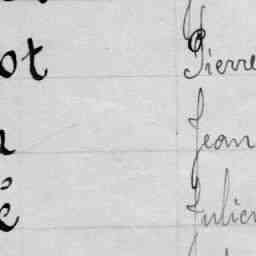 ot Pierre
Jean
é Julien